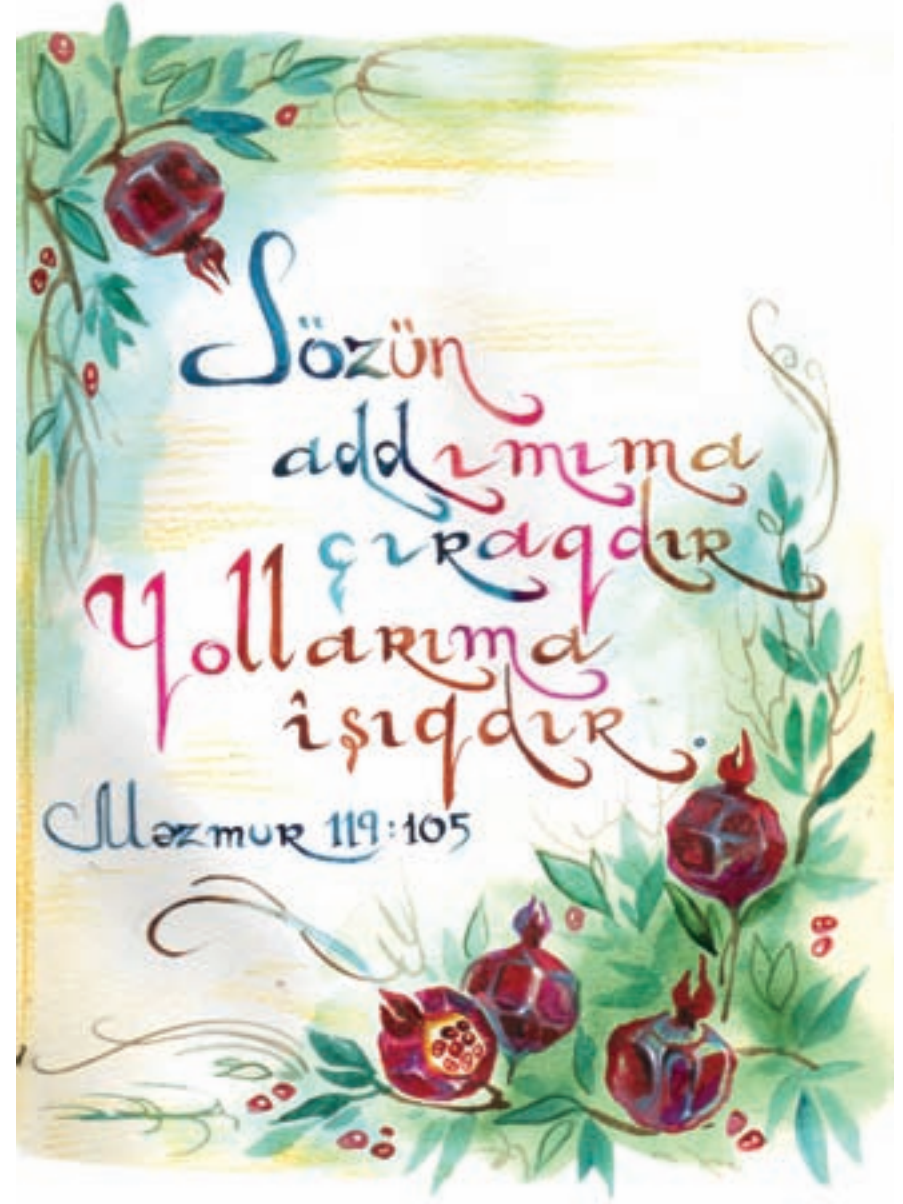 Sözün
addımıma
çıraqdır
Yollarıma
îşıqdır.
Məzmur 119:105